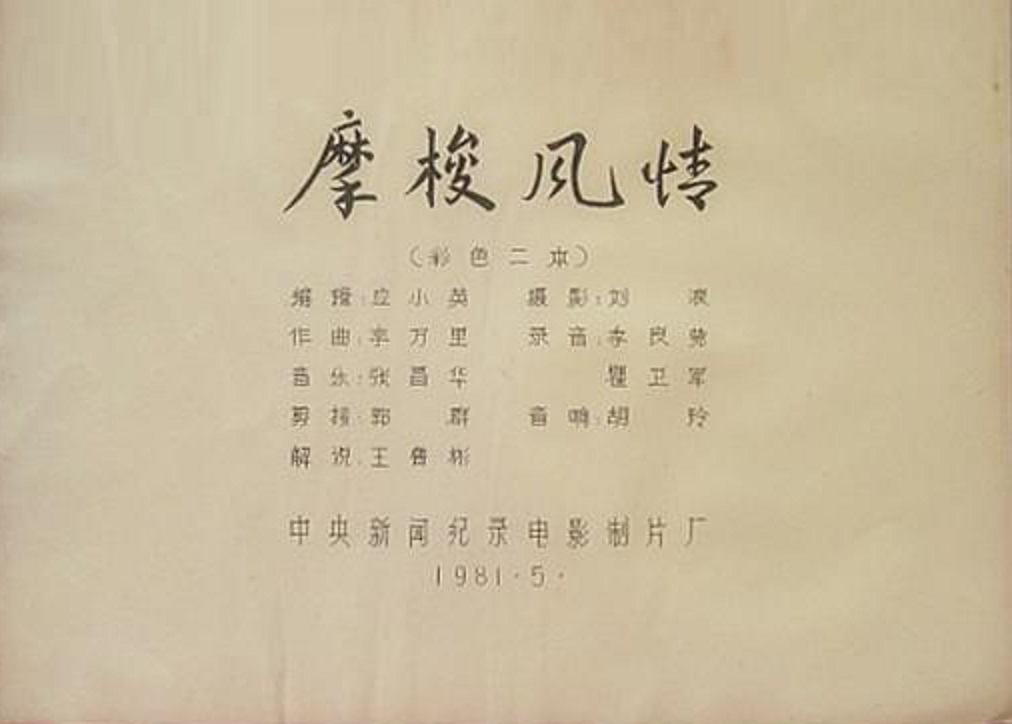 摩梭风情
（彩色二本）
编辑：应小英 摄影：刘浪
作曲：李万里 录音：李良
音乐：张昌华 瞿卫军
剪接：郭群 音响：胡玲
解说：王鲁彬
中央新闻纪录电影制片厂
1981·5·